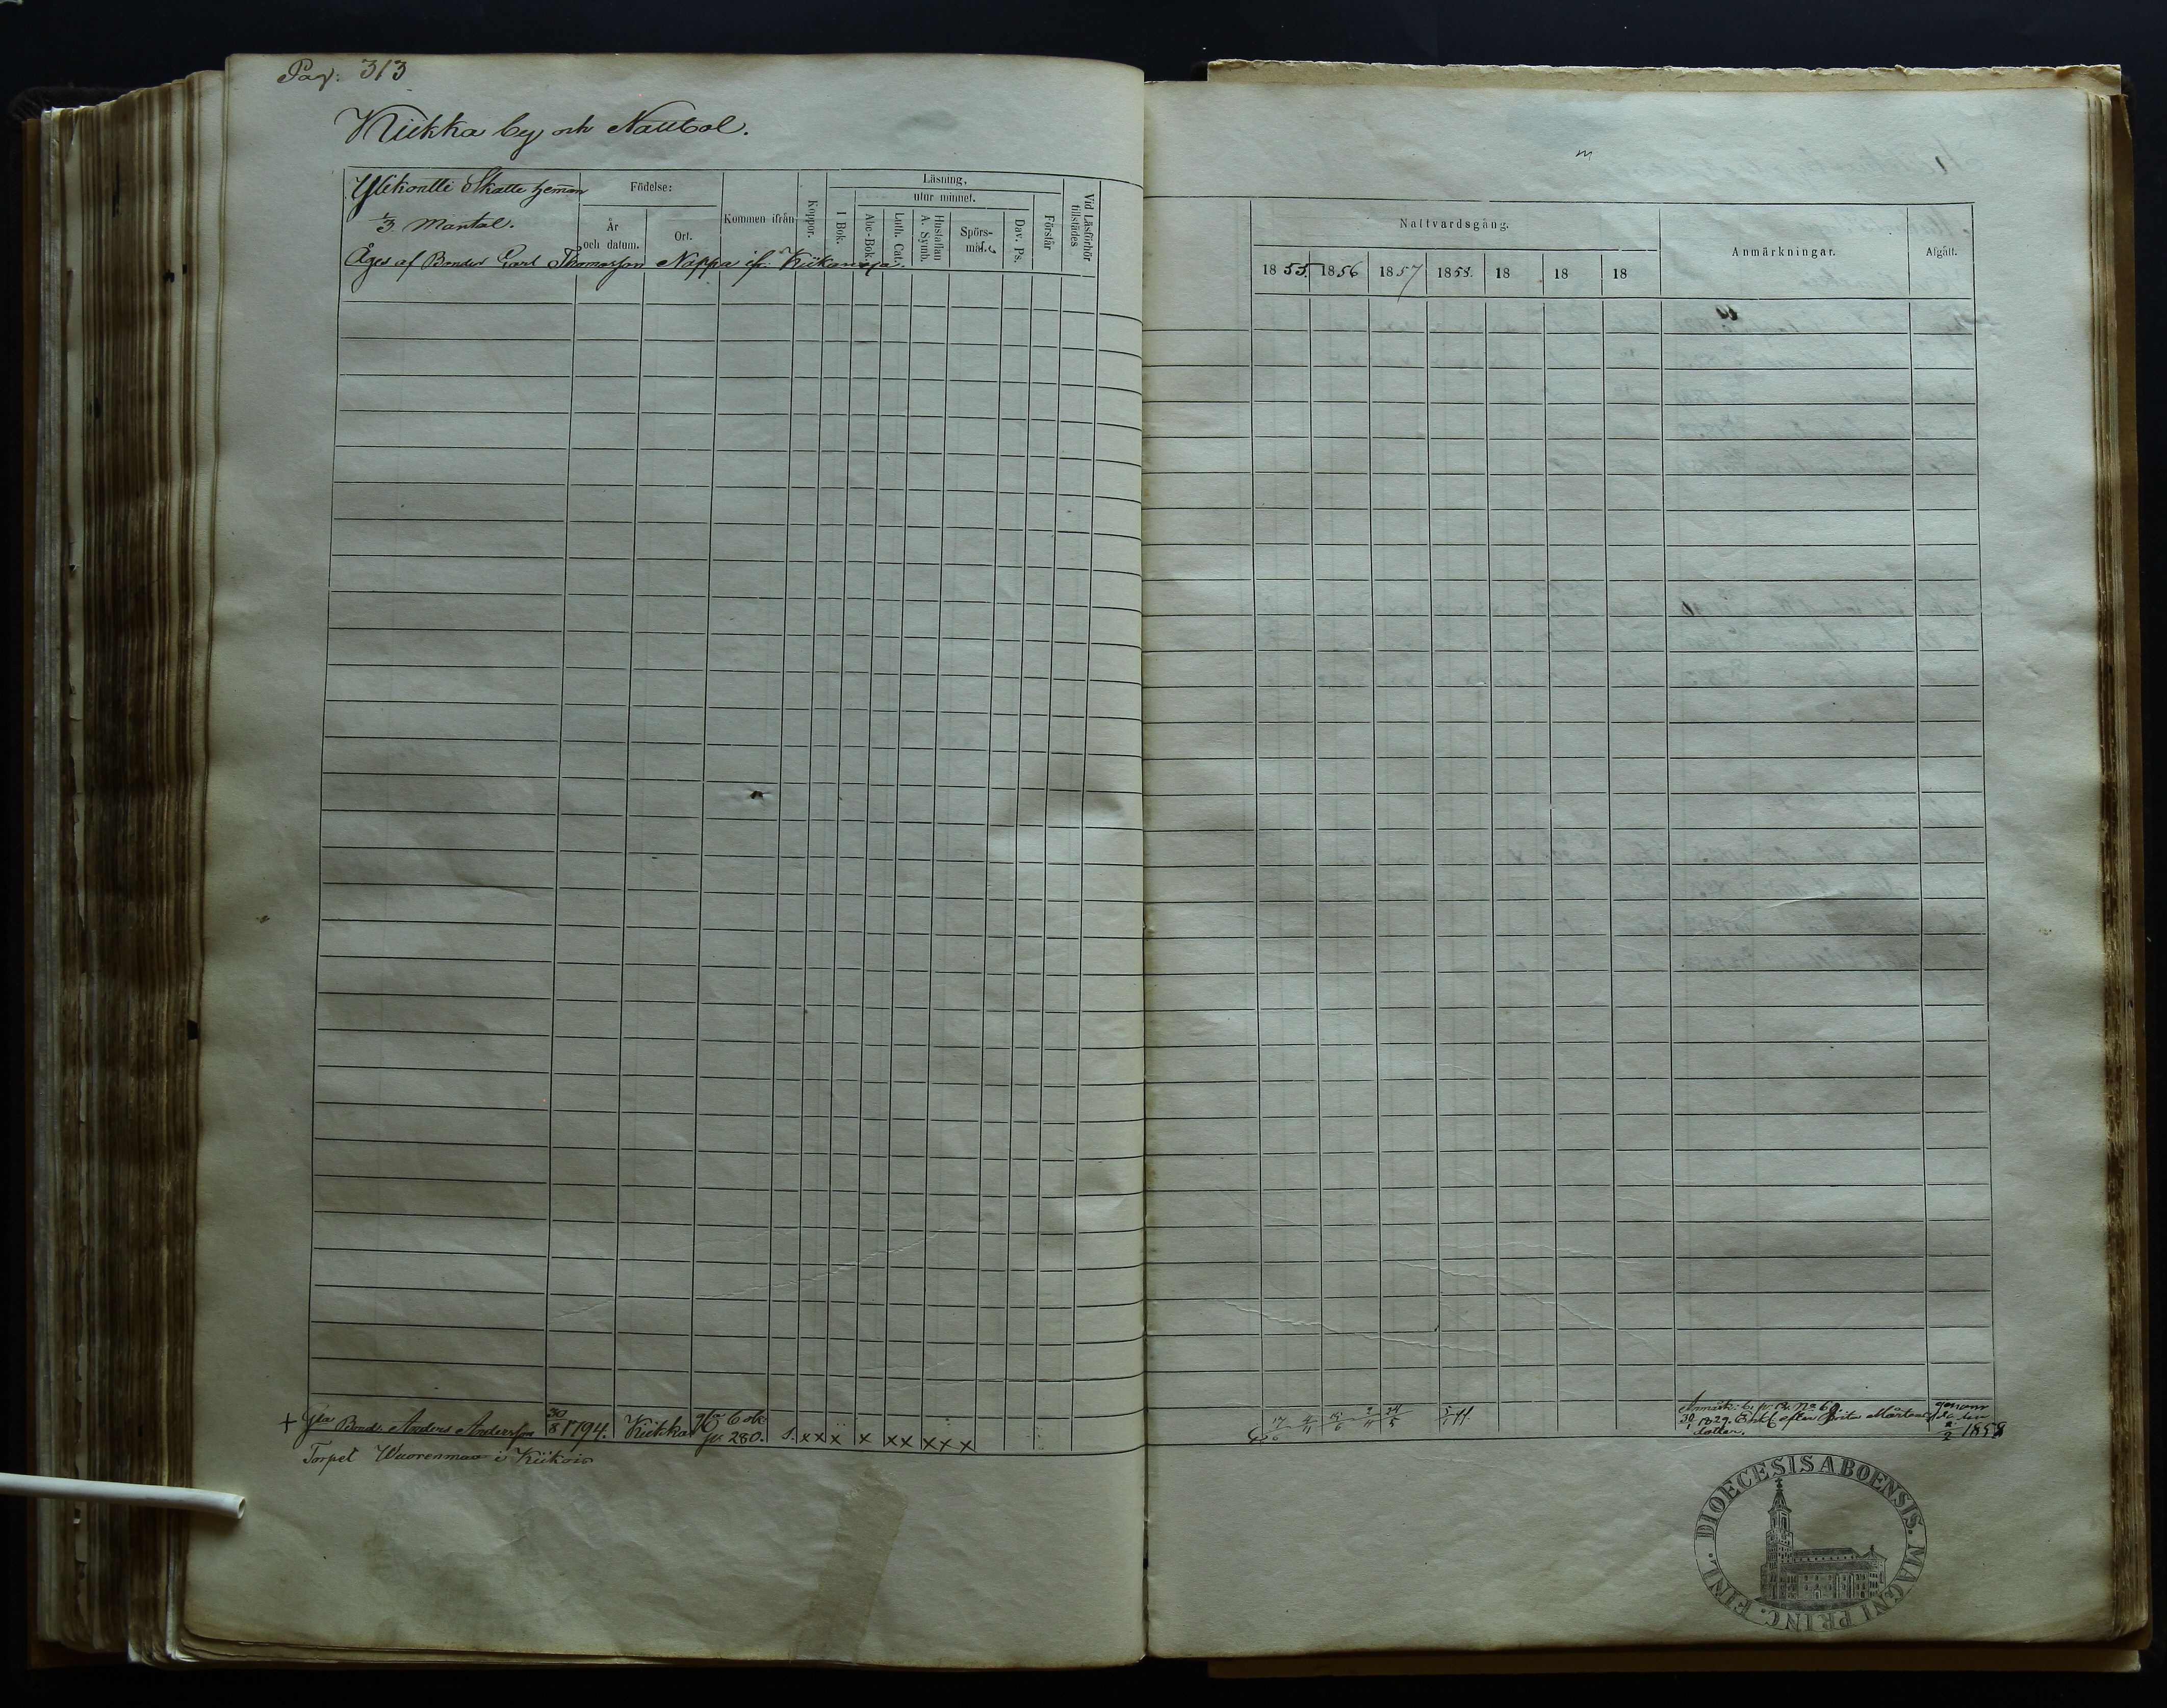 Pag: 313
Kiikka by och Nautool.
Ylikontti Skatte heman
1/3 Mantal.
Äges af Bonden Carl Thomasson Nappa ifr: Kiikanoja.
Födelse:
År och datum.
Ort.
Kommen ifrån
Koppor.
Läsning,
utur minnet.
I Bok.
Abc-Bok.
Luth. Cat.
Hustaflan A. Symb.
Spörs-mål.
Dav. Ps.
Förstår
Vid Läsförhör tillstädes
Nattvardsgång.
1855. 1856 1857 1858. 18 18 18
Anmärkningar.
Afgått.
+ Gla Bond. Anders Andersson 30/8 1794. Kiikka bok p. 280. s. x x x x x x x x x
Torpet Wuorenmaa i Kiikois
1829. Enkl. efter Brita Mårtens dotter.
1858
DIOECESIS ABOENSIS. MAGNI PRINC. FINL.